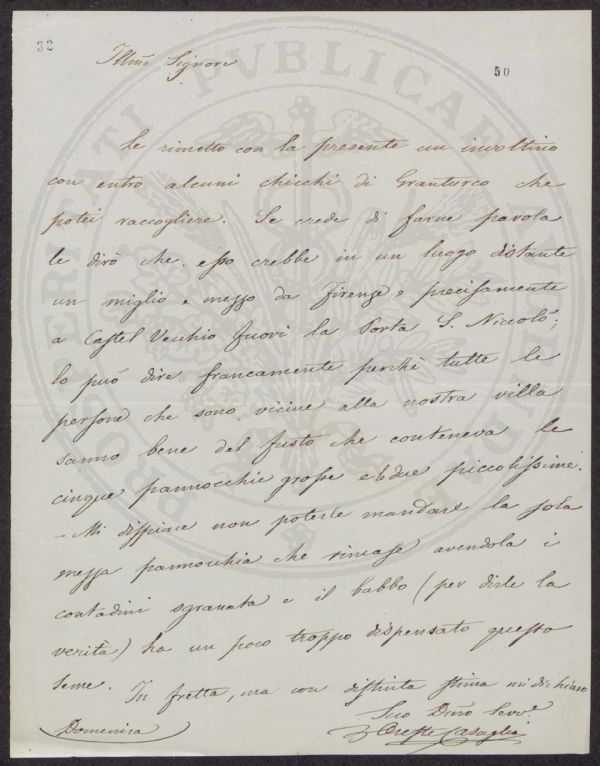 32
Illmo Signore
50
Le rimetto con la presente un involtino
con entro alcuni chicchi di Granturco che
potei raccogliere. Se crede di farne parola
le dirò che esso crebbe in un luogo distante
un miglio e mezzo da Firenze e precisamente
a Castel Vecchio fuori la Porta S. Niccolò;
lo può dire francamente perchè tutte le
persone che sono vicine alla nostra villa
sanno bene del fusto che conteneva le
cinque pannocchie grosse e le due piccolissime.
- Mi dispiace non poterle mandare la sola
mezza pannocchia che rimase avendola i
contadini sgranata e il babbo (per dirle la
verità) ha un poco troppo dispensato questo
seme. In fretta, ma con distinta stima mi dichiaro
Suo Dmo Servo
Domenica
Oreste Casaglia
PRO VBERITATI PVBLICAE AVGENDAE